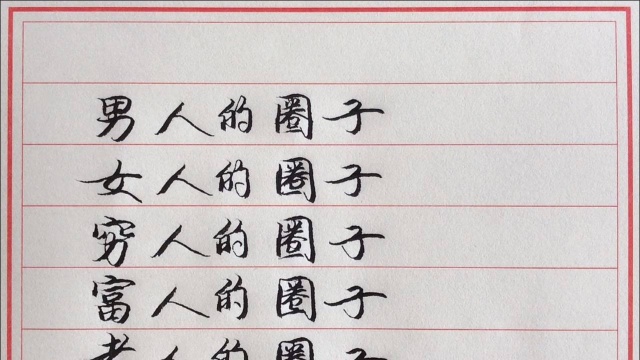 男人的圈子
女人的圈子
穷人的圈子
富人的圈子
老人的圈子